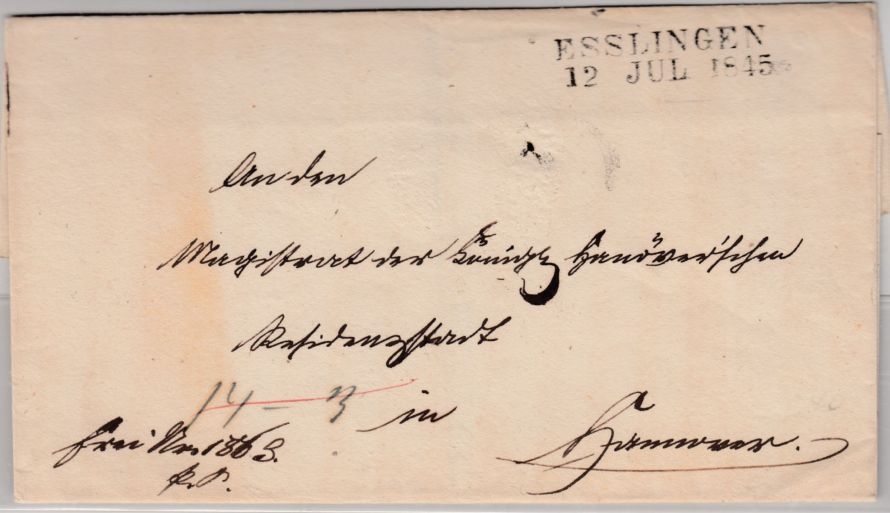 ESSLINGEN
12 JUL 1845
An den
Magistrat der Königl. Hanöver'schen
Residenzstadt
14 - 3
in
Hannover.
frei Nr. 1863.